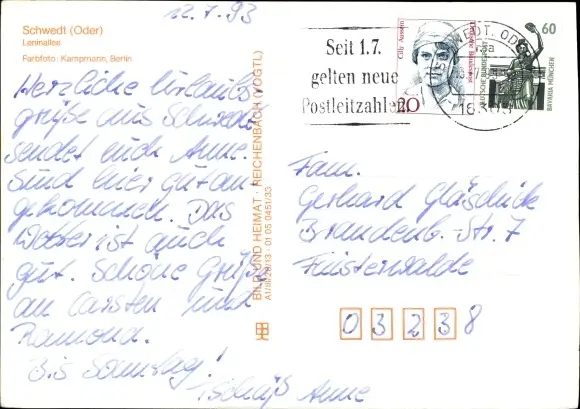 12.7.93
Schwedt (Oder)
Leninallee
Farbfoto: Kampmann, Berlin
Herzliche Urlaubs
grüße aus Schwedt
sendet euch Anne.
Sind hier gut an-
gekommen. Das
Wetter ist auch
gut. Schöne Grüße
an Carsten und
Raimond.
Bis Samstag!
Tschüß Anne
BILD UND HEIMAT · REICHENBACH (VOGTL)
01 05 0451/33
Seit 1.7.
gelten neue
Postleitzahlen
SCHWEDT, ODER
Cilly Aussem
DEUTSCHE BUNDESPOST
20
60
DEUTSCHE BUNDESPOST
BAVARIA MÜNCHEN
Fam.
Gerhard Gläschick
Brandenb.-Str. 7
Finsterwalde
03238